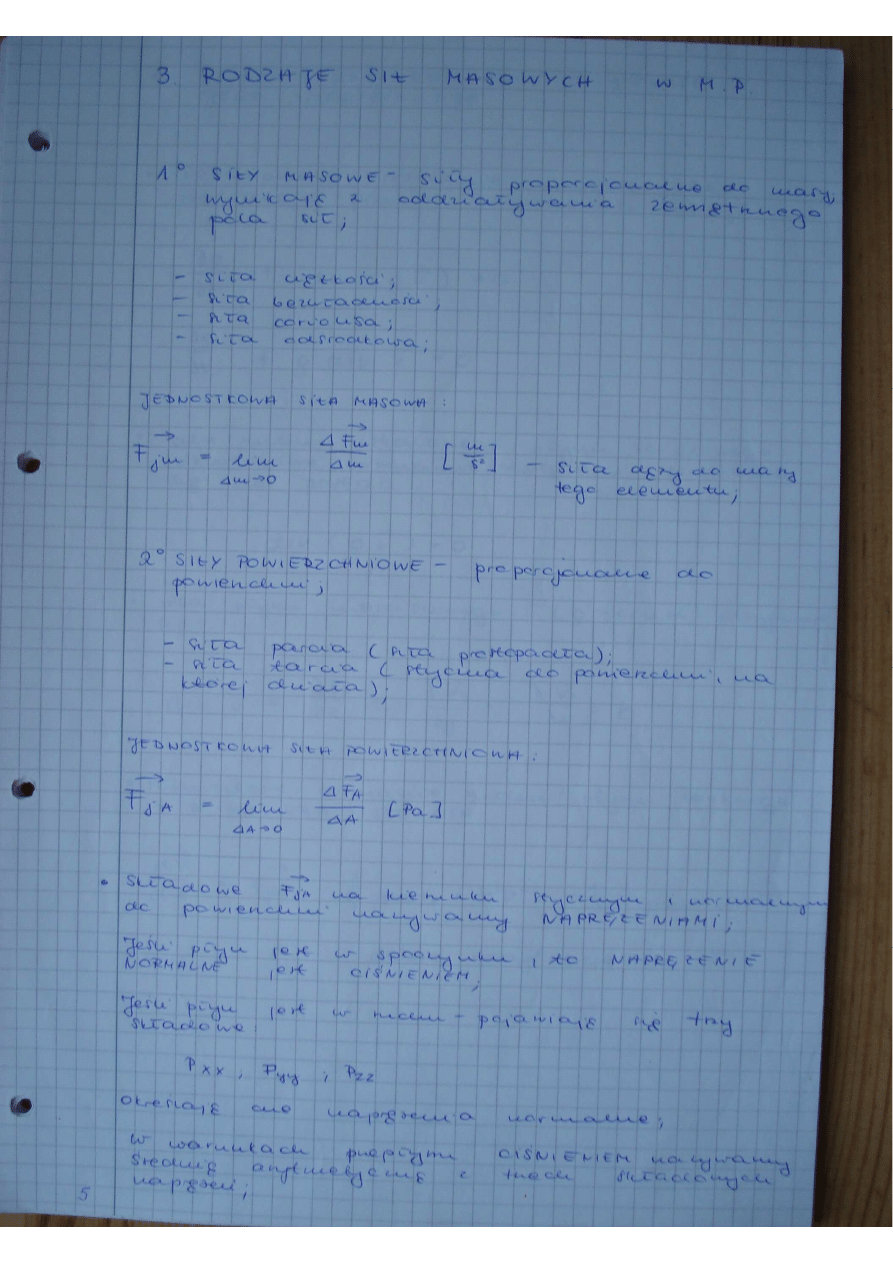 3 RODZAJE SIŁ MASOWYCH W M.P.
1° SIŁY MASOWE - siły proporcjonalne do masy,
wynikają z oddziaływania zewnętrznego
pola sił;
- siła ciężkości;
- siła bezwładności;
- siła coriolisa;
- siła odśrodkowa;
JEDNOSTKOWA SIŁA MASOWA:
F⃗jm = lim Δm→0 ΔF⃗m/Δm [m/s²] - siła dąży do masy
tego elementu;
2° SIŁY POWIERZCHNIOWE - proporcjonalne do
powierzchni;
- siła parcia (siła prostopadła);
- siła tarcia (styczna do powierzchni, na
której działa);
JEDNOSTKOWA SIŁA POWIERZCHNIOWA:
F⃗jA = lim ΔA→0 ΔF⃗A/ΔA [Pa]
• Składowe F⃗jA na kierunku stycznym i normalnym
do powierzchni nazywamy NAPRĘŻENIAMI;
Jeśli płyn jest w spoczynku, to NAPRĘŻENIE
NORMALNE jest CIŚNIENIEM;
Jeśli płyn jest w ruchu - pojawiają się trzy
składowe:
Pxx, Pyy, Pzz
Określają one naprężenia normalne;
W warunkach przepływu CIŚNIENIEM nazywamy
średnią arytmetyczną z trzech składowych
naprężeń;
5